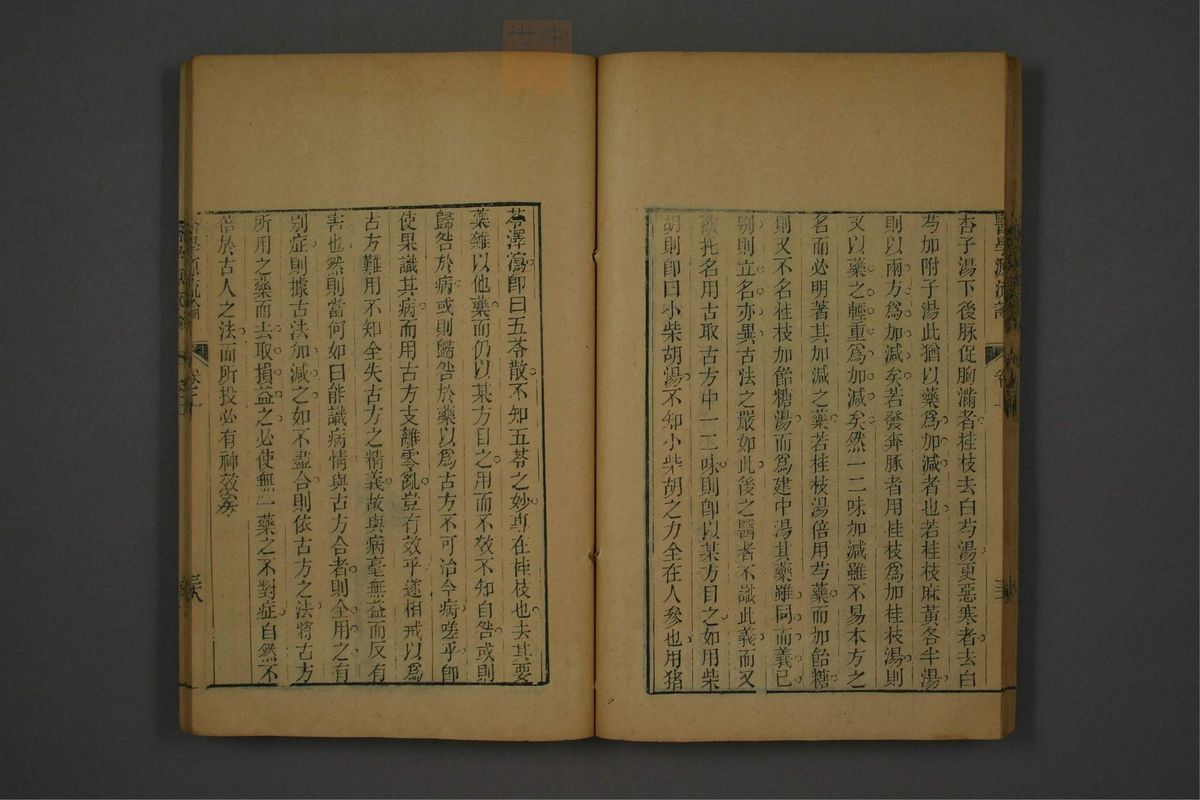 醫學源流論
卷上
杏子湯下後脉促胸滿者桂枝去白芍湯更惡寒者去白
芍加附子湯此猶以藥爲加減者也若桂枝麻黃各半湯
則以兩方爲加減矣若發奔豚者用桂枝爲加桂枝湯則
又以藥之輕重爲加減矣然一二味加減雖不易本方之
名而必明著其加減之藥若桂枝湯倍用芍藥而加飴糖
則又不名桂枝加飴糖湯而爲建中湯其藥雖同而義已
别則立名亦異古法之嚴如此後之醫者不識此義而又
欲托名用古取古方中一二味則卽以某方目之如用柴
胡則卽曰小柴胡湯不知小柴胡之力全在人參也用猪
苓澤瀉卽曰五苓散不知五苓之妙專在桂枝也去其要
藥雜以他藥而仍以某方目之用而不效不知自咎或則
歸咎於病或則歸咎於藥以爲古方不可治今病嗟乎卽
使果識其病而用古方支離零亂豈有效乎遂相戒以爲
古方難用不知全失古方之精義故與病毫無益而反有
害也然則當何如曰能識病情與古方合者則全用之有
别症則據古法加減之如不盡合則依古方之法將古方
所用之藥而去取損益之必使無一藥之不對症自然不
倍於古人之法而所投必有神效矣